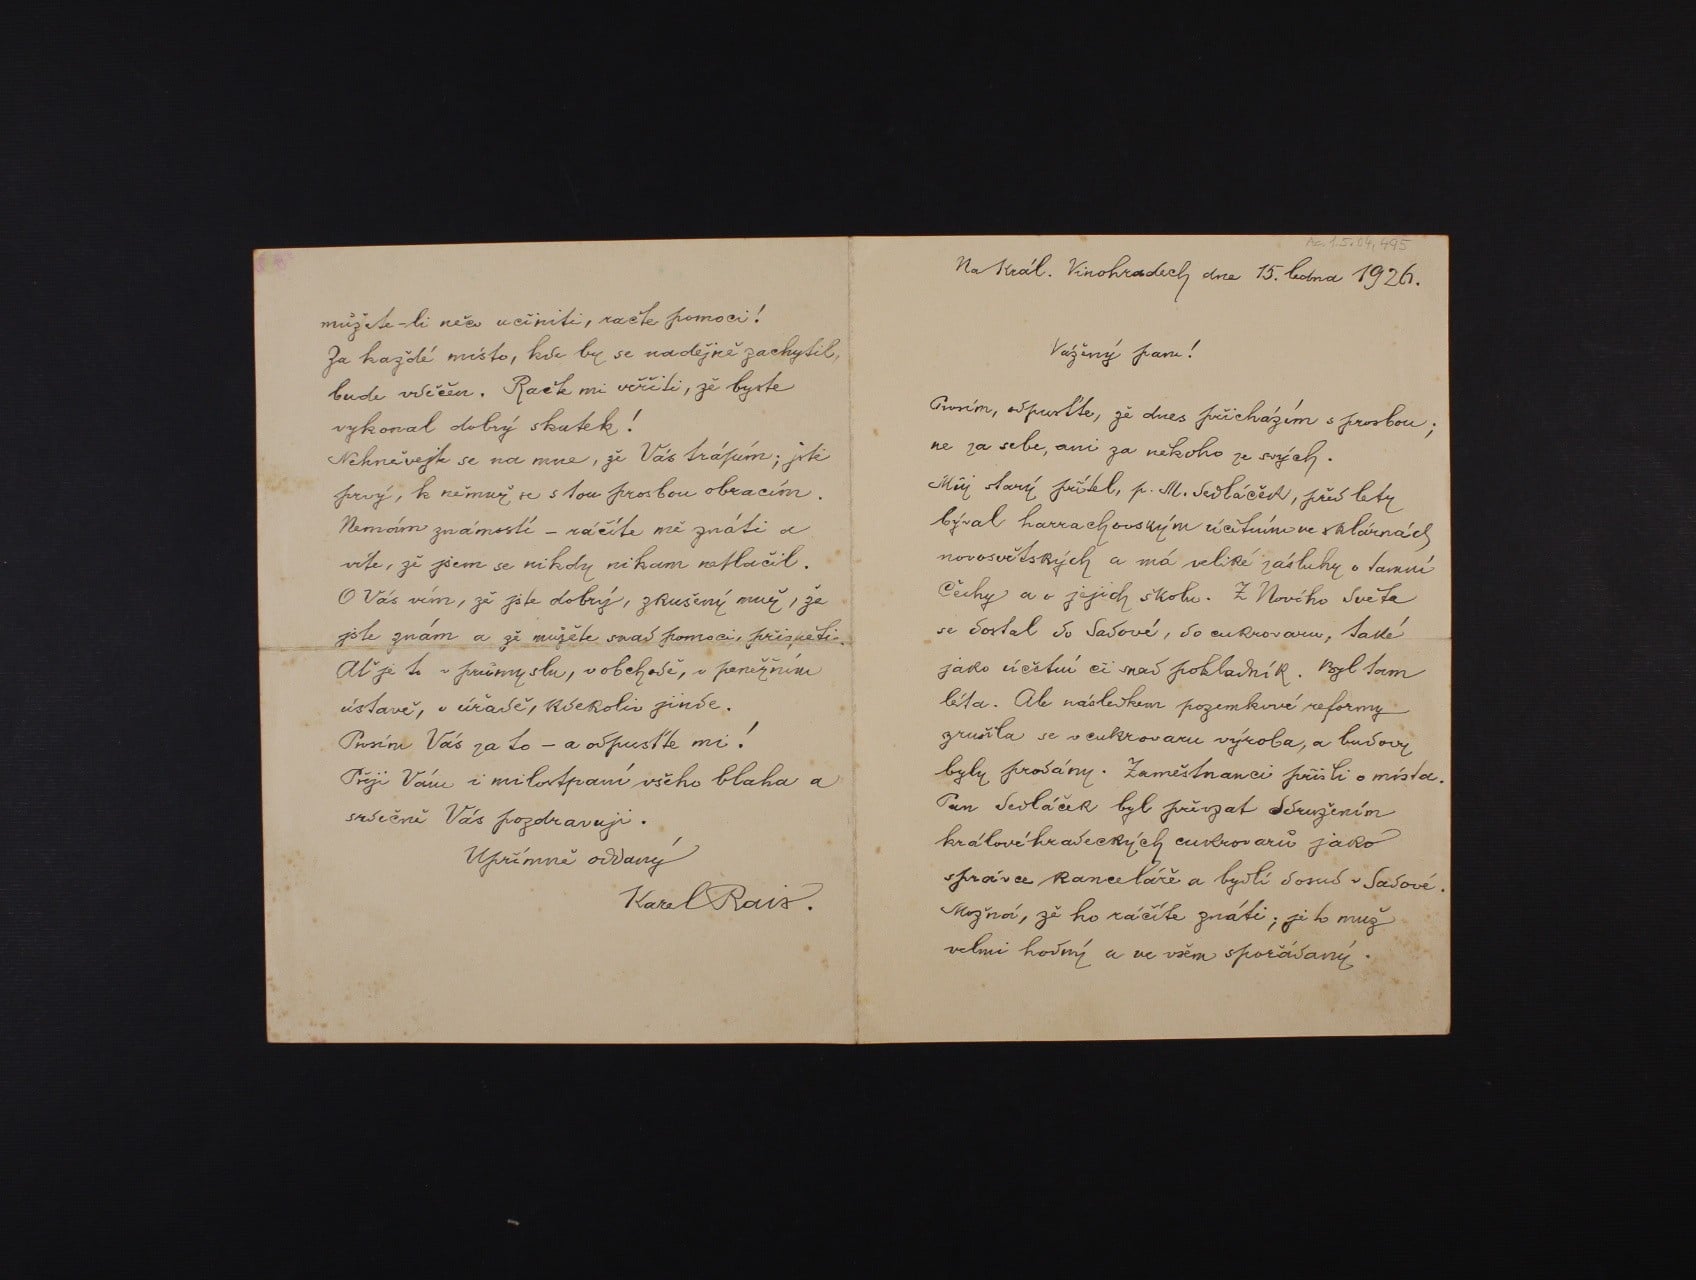 Ac. 1. 5. 04, 495
Na Král. Vinohradech dne 15. ledna 1926.
Vážený pane!
Prosím, odpusťte, že dnes přicházím s prosbou;
ne za sebe, ani za někoho ze svých.
Můj starý přítel, p. M. Sedláček, před lety
býval harrachovským účetním ve sklárnách
novosvětských a má veliké zásluhy o tamní
Čechy a o jejich školu. Z Nového Světa
se dostal do Sadové, do cukrovaru, také
jako účetní či snad pokladník. Byl tam
léta. Ale následkem pozemkové reformy
zrušila se v cukrovaru výroba, a budovy
byly prodány. Zaměstnanci přišli o místa.
Pan Sedláček byl převzat Sdružením
královéhradeckých cukrovarů jako
správce kanceláře a bydlí dosud v Sadové.
Možná, že ho ráčíte znáti; je to muž
velmi hodný a ve všem spořádaný.
můžete-li něco učiniti, račte pomoci!
Za každé místo, kde by se nadějně zachytil,
bude vděčen. Račte mi věřiti, že byste
vykonal dobrý skutek!
Nehněvejte se na mne, že Vás trápím; jste
prvý, k němuž se s tou prosbou obracím.
Nemám známostí – ráčíte mě znáti a
víte, že jsem se nikdy nikam netlačil.
O Vás vím, že jste dobrý, zkušený muž, že
jste znám a že můžete snad pomoci, přispěti.
Ať je to v průmyslu, v obchodě, v peněžním
ústavě, v úřadě, kdekoliv jinde.
Prosím Vás za to – a odpusťte mi!
Přeji Vám i milostpaní všeho blaha a
srdečně Vás pozdravuji.
Upřímně oddaný
Karel Rais.